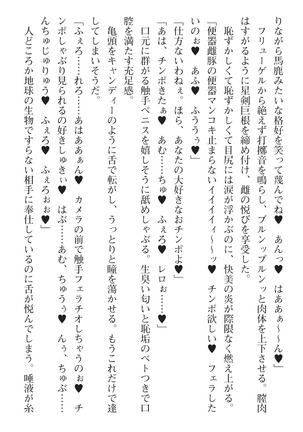 りながら馬鹿みたいな格好を笑って蔑んでね♥　あんっ♥　はあぁぁ～～ん♥」
フリューゲルから絶えず打擲音を鳴らし、ブルンッブルンッと肉体を上下させる。膣肉
はすがるように星剣巨根を締め付け、雌の悦びを享受した。
恥ずかしくて恥ずかしくて目尻には涙が浮かぶのに、快美の炎が際限なく燃え上がる。
「便器雌豚の便器マンコキ止まらないイイイイィィ♥　チンポ欲しい♥　フェラした
いのぉ♥　あふぅ♥　ふううぅ♥」
「仕方ないわねぇ。ほら、あなたの大好きなおチンポよ♥」
「あは、チンポきたぁ♥　あむ……ちゅ♥　ふぇろ♥　レロぉ……♥」
口元に群がる触手ペニスを嬉しそうに舐めしゃぶる。生臭い匂いと恥垢のベトつきで口
腔を満たす感覚に、幸せいっぱい♥
亀頭をキャンディーのように舌で転がし、うっとりと瞳を蕩かせる。もうこれだけで達
してしまいそうだ。
「ふぇろ……れろ……あはあぁぁん♥　カメラの前で触手フェラチオしちゃうのぉ♥　チ
ンポしゃぶり見られるの好きしゅきぃ♥　はぶ……あむ、ちゅうぅ♥　んぅ、ちゅぶ……
んちゅじゅりゅう♥　ふぇろ♥　ふぇろぉぉ♥」
人どころか地球の生物ですらない相手に奉仕しているのに舌が悦んでしまう。唾液が糸